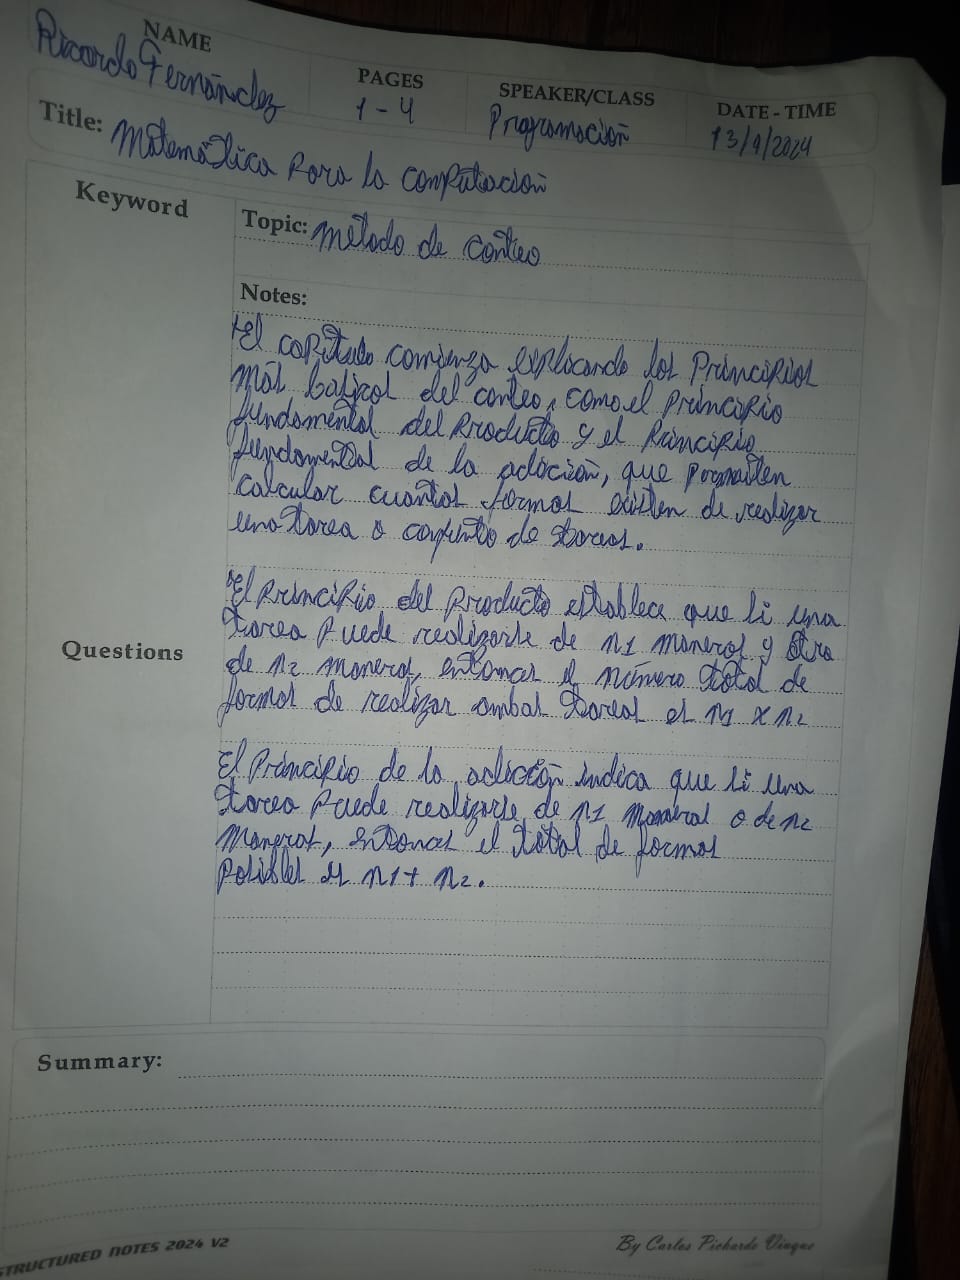 NAME
Ricardo Fernández
PAGES
1 - 4
SPEAKER/CLASS
Programación
DATE - TIME
13/9/2024
Title: Matemática Para la computación
Keyword
Topic: método de conteo
Notes:
*El capítulo comienza explicando los Principios
más basicos del conteo, como el principio
fundamental del Producto y el Principio
fundamental de la adición, que permiten
calcular cuantas formas existen de realizar
una tarea o conjunto de tareas.
*El Principio del Producto establece que si una
tarea Puede realizarse de n1 maneras y otra
de n2 maneras, entonces el número total de
formas de realizar ambas tareas es n1 x n2
Questions
El Principio de la adición indica que si una
tarea Puede realizarse de n1 maneras o de n2
Maneras, entonces el total de formas
Posibles es n1 + n2.
Summary:
STRUCTURED NOTES 2024 V2
By Carlos Pichardo Viuque